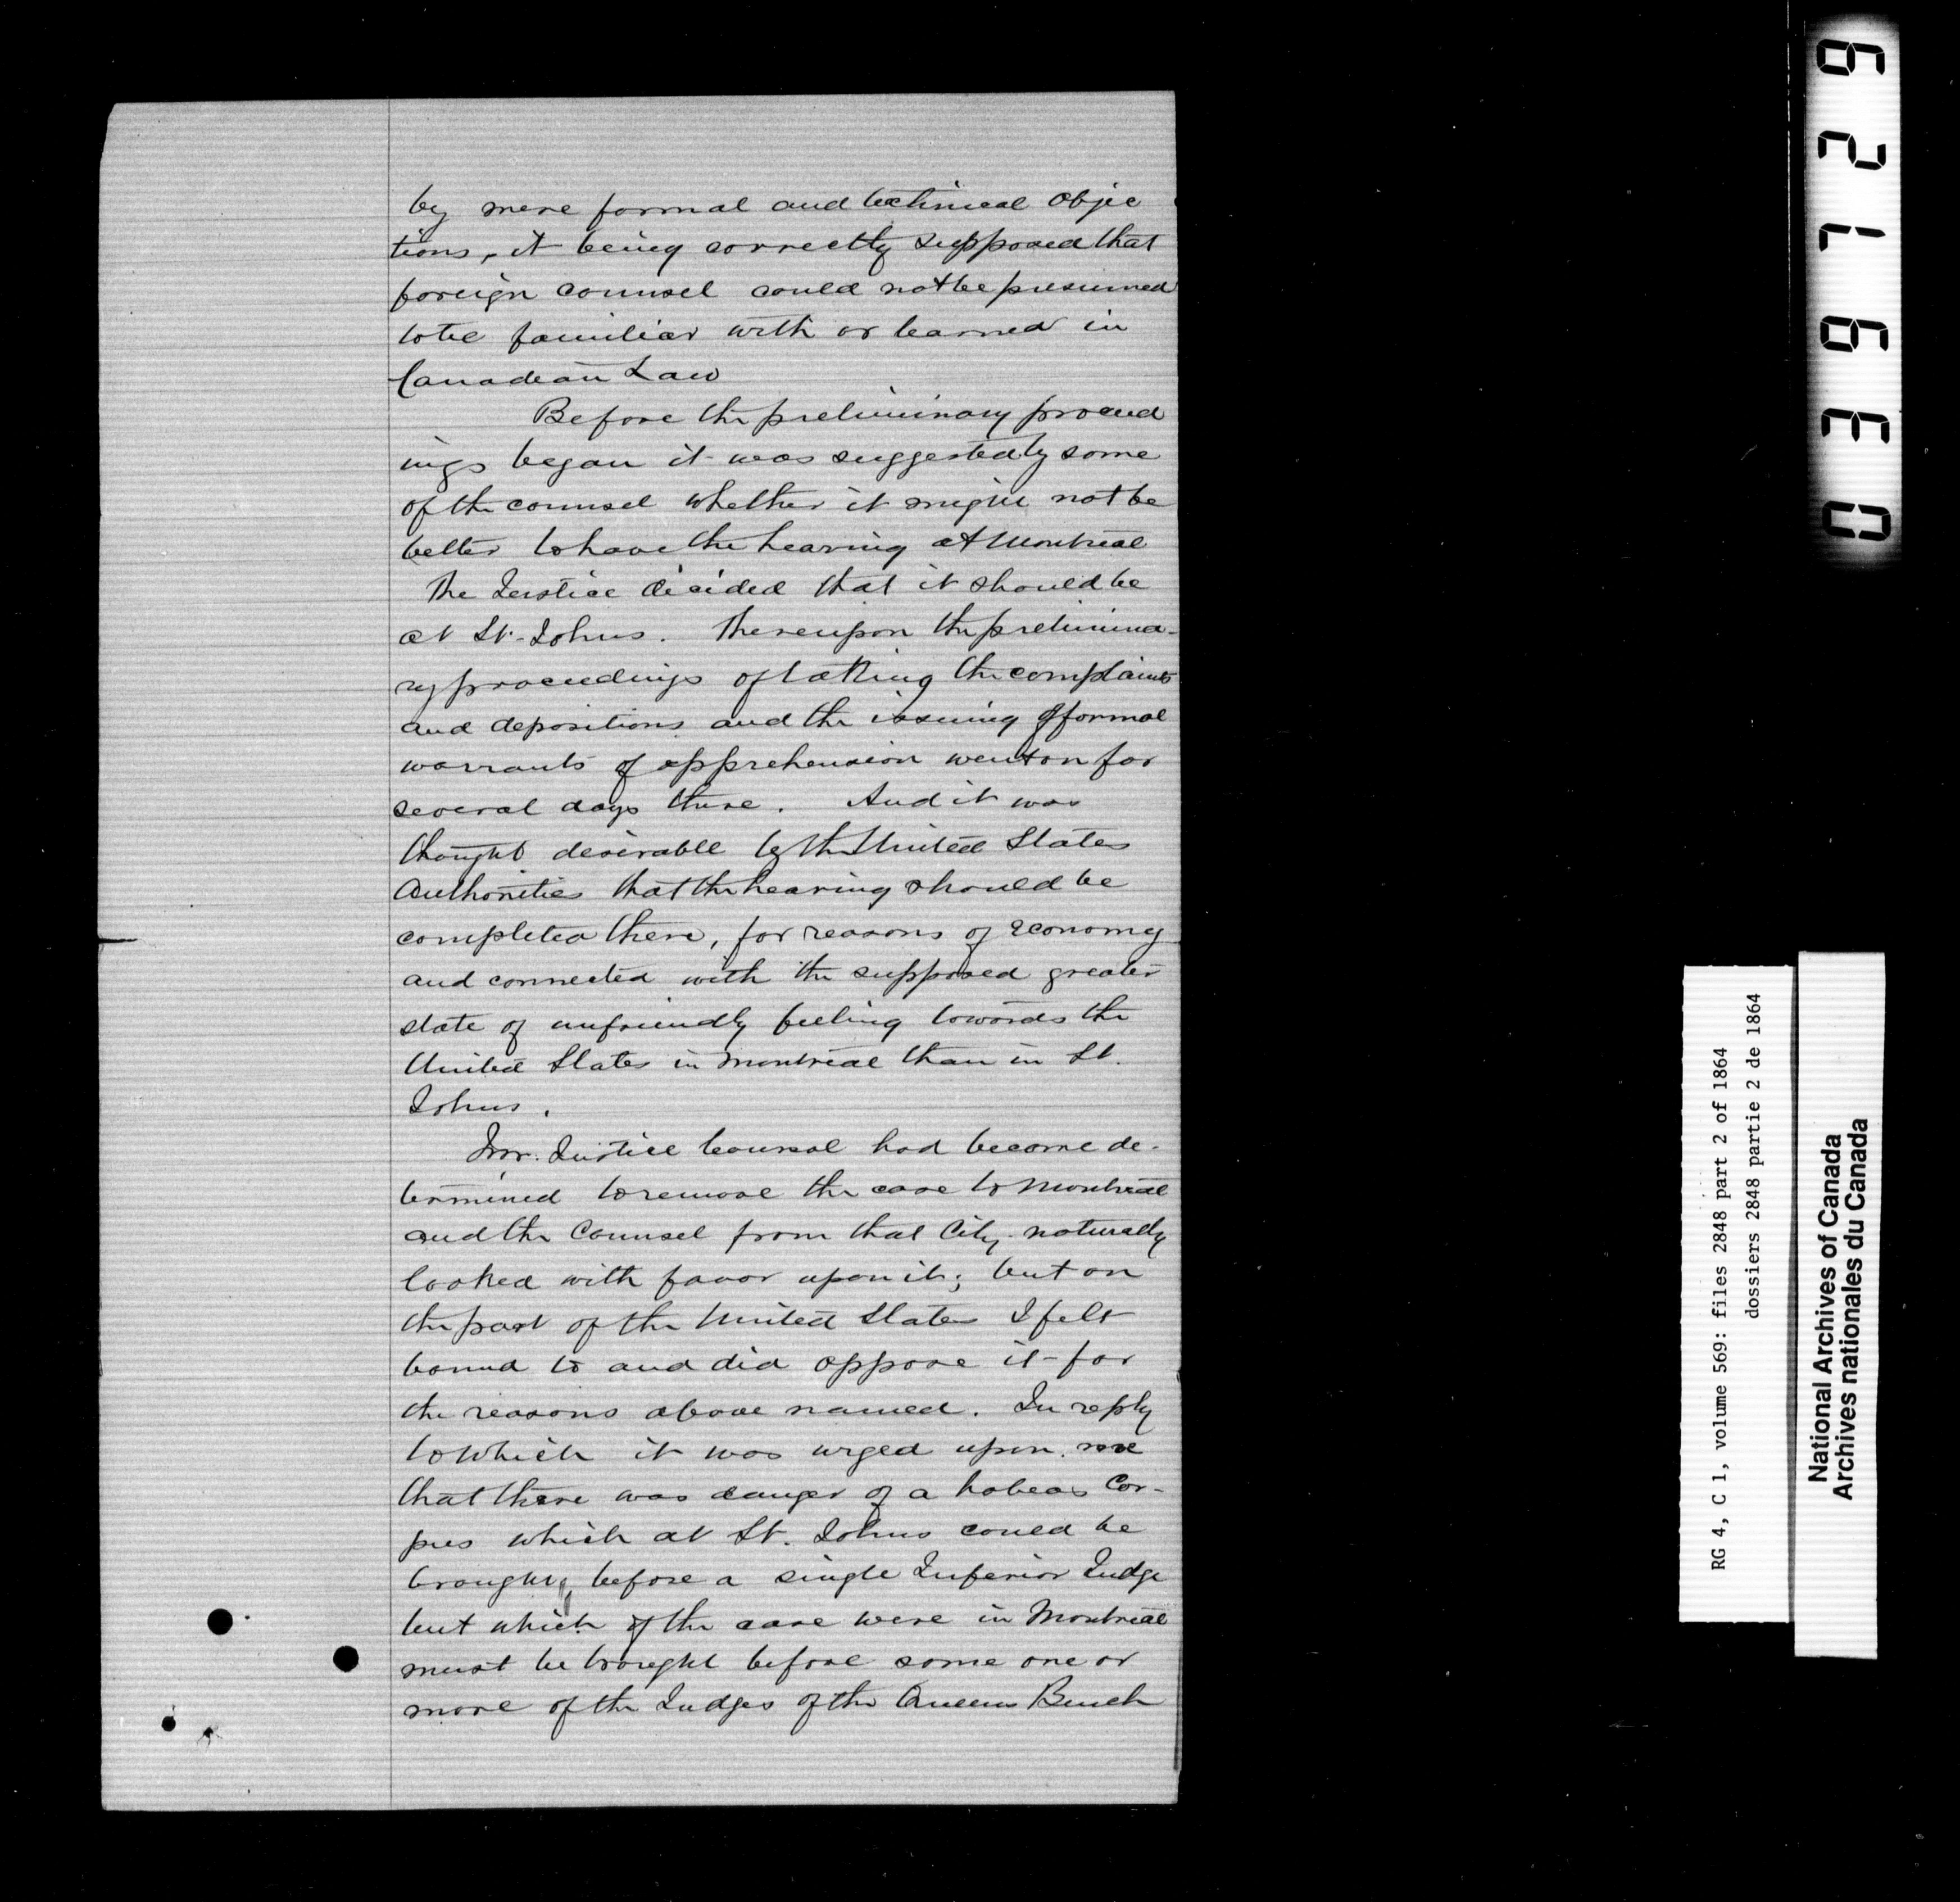 by mere formal and technical objec
tions, it being correctly supposed that
foreign counsel could not be presumed
to be familiar with or learned in
Canadian Law
Before the preliminary proceed
ings began it was suggested by some
of the counsel whether it might not be
better to have the hearing at Montreal
The Justice decided that it should be
at St. Johns. Thereupon the prelimina-
ry proceedings of taking the complaints
and depositions and the issuing of formal
warrants of apprehension went on for
several days there. And it was
thought desirable by the United States
Authorities that the hearing should be
completed there, for reasons of economy
and connected with the supposed greater
state of unfriendly feeling towards the
United States in Montreal than in St.
Johns.
Mr. Justice Coursol had become de-
termined to remove the case to Montreal
and the Counsel from that City naturally
looked with favor upon it; but on
the part of the United States I felt
bound to and did oppose it for
the reasons above named. In reply
to which it was urged upon me
that there was danger of a habeas Cor-
pus which at St. Johns could be
brought, before a single Inferior Judge
but which if the case were in Montreal
must be brought before some one or
more of the Judges of the Queens Bench
03617629
RG 4, C 1, volume 569: files 2848 part 2 of 1864
dossiers 2848 partie 2 de 1864
National Archives of Canada
Archives nationales du Canada